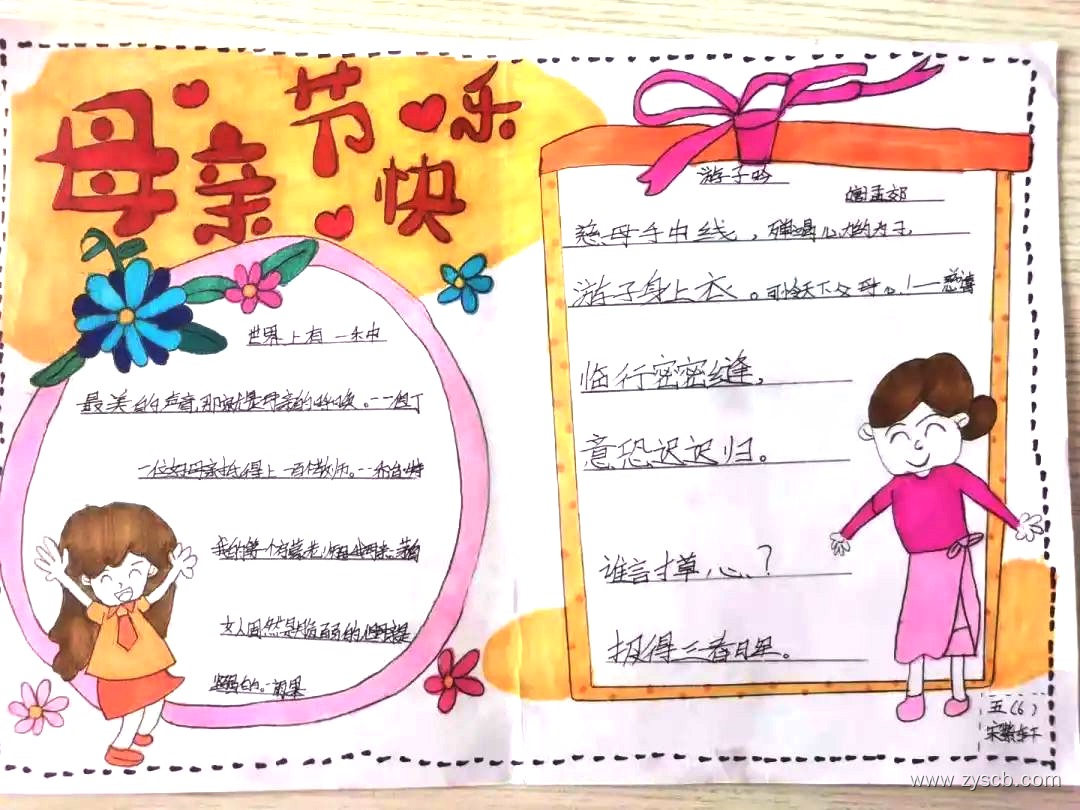 母亲节快乐
世界上有一
最美的声音,那就是母亲的呼唤。--但丁
一位好母亲抵得上一百个教师。--
女人固然是脆弱的,母亲是
坚强的。--雨果
游子吟
孟郊
慈母手中线,
游子身上衣。可怜天下父母心!--慈禧
临行密密缝,
意恐迟迟归。
谁言寸草心?
报得三春晖。
五(6)
www.zyscb.com